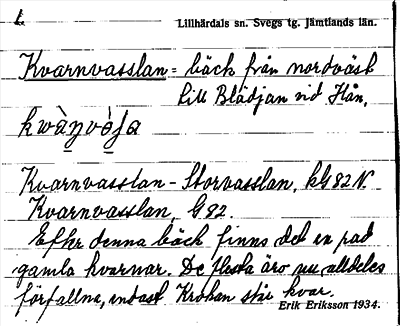 L
Lillhärdals sn. Svegs tg. Jämtlands län.
Kvarnvasslan = bäck från nordväst
till Blädjan vid Hån,
Kvarnvasslan - Storvasslan, kG 82 N.
Kvarnvasslan, G 92.
Efter denna bäck finns det en rad
gamla kvarnar. De flesta äro nu alldeles
förfallna, endast Krokan står kvar.
Erik Eriksson 1934.